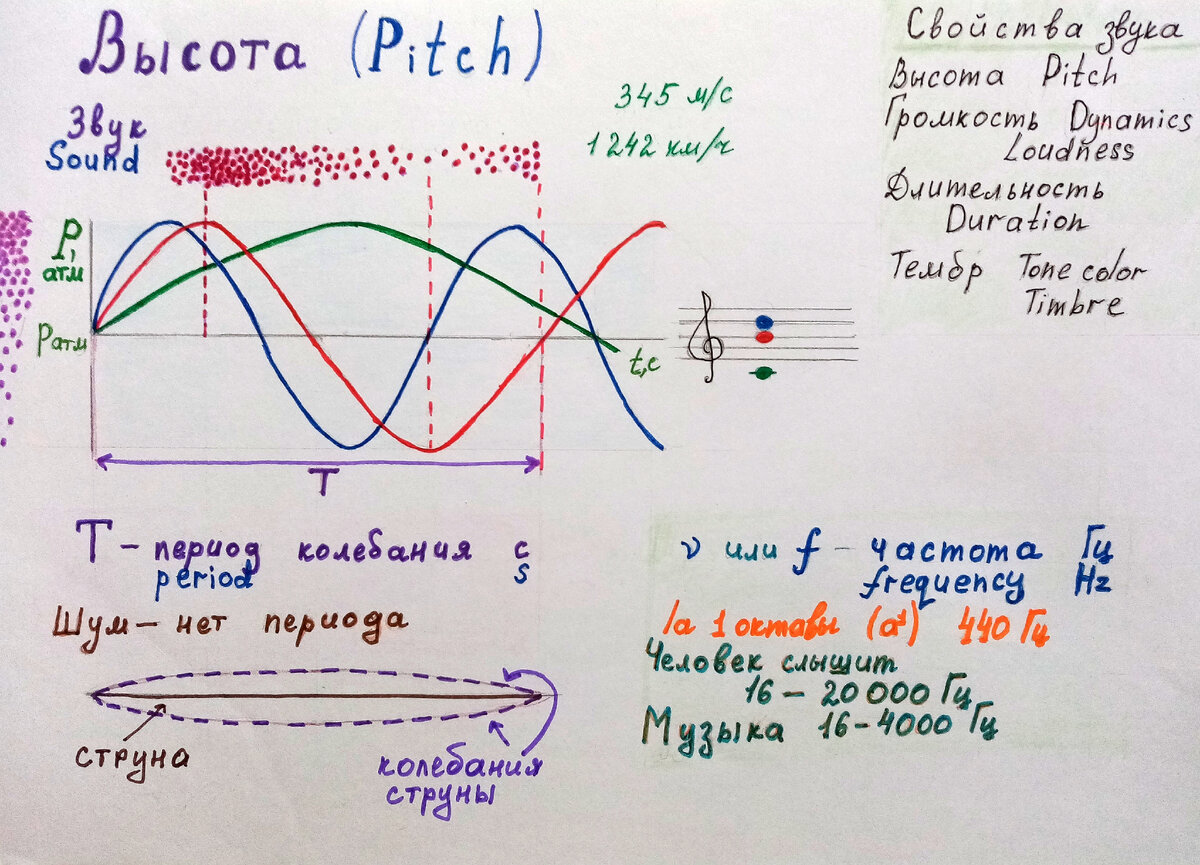 Высота (Pitch)
Звук
Sound
345 м/с
1242 км/ч
P,
атм
Pатм
t,c
T
Свойства звука
Высота Pitch
Громкость Dynamics
Loudness
Длительность
Duration
Тембр Tone color
Timbre
T – период колебания с
period s
Шум – нет периода
струна
колебания
струны
ν или f – частота Гц
frequency Hz
la 1 октавы (a¹) 440 Гц
Человек слышит
16 – 20 000 Гц
Музыка 16-4000 Гц